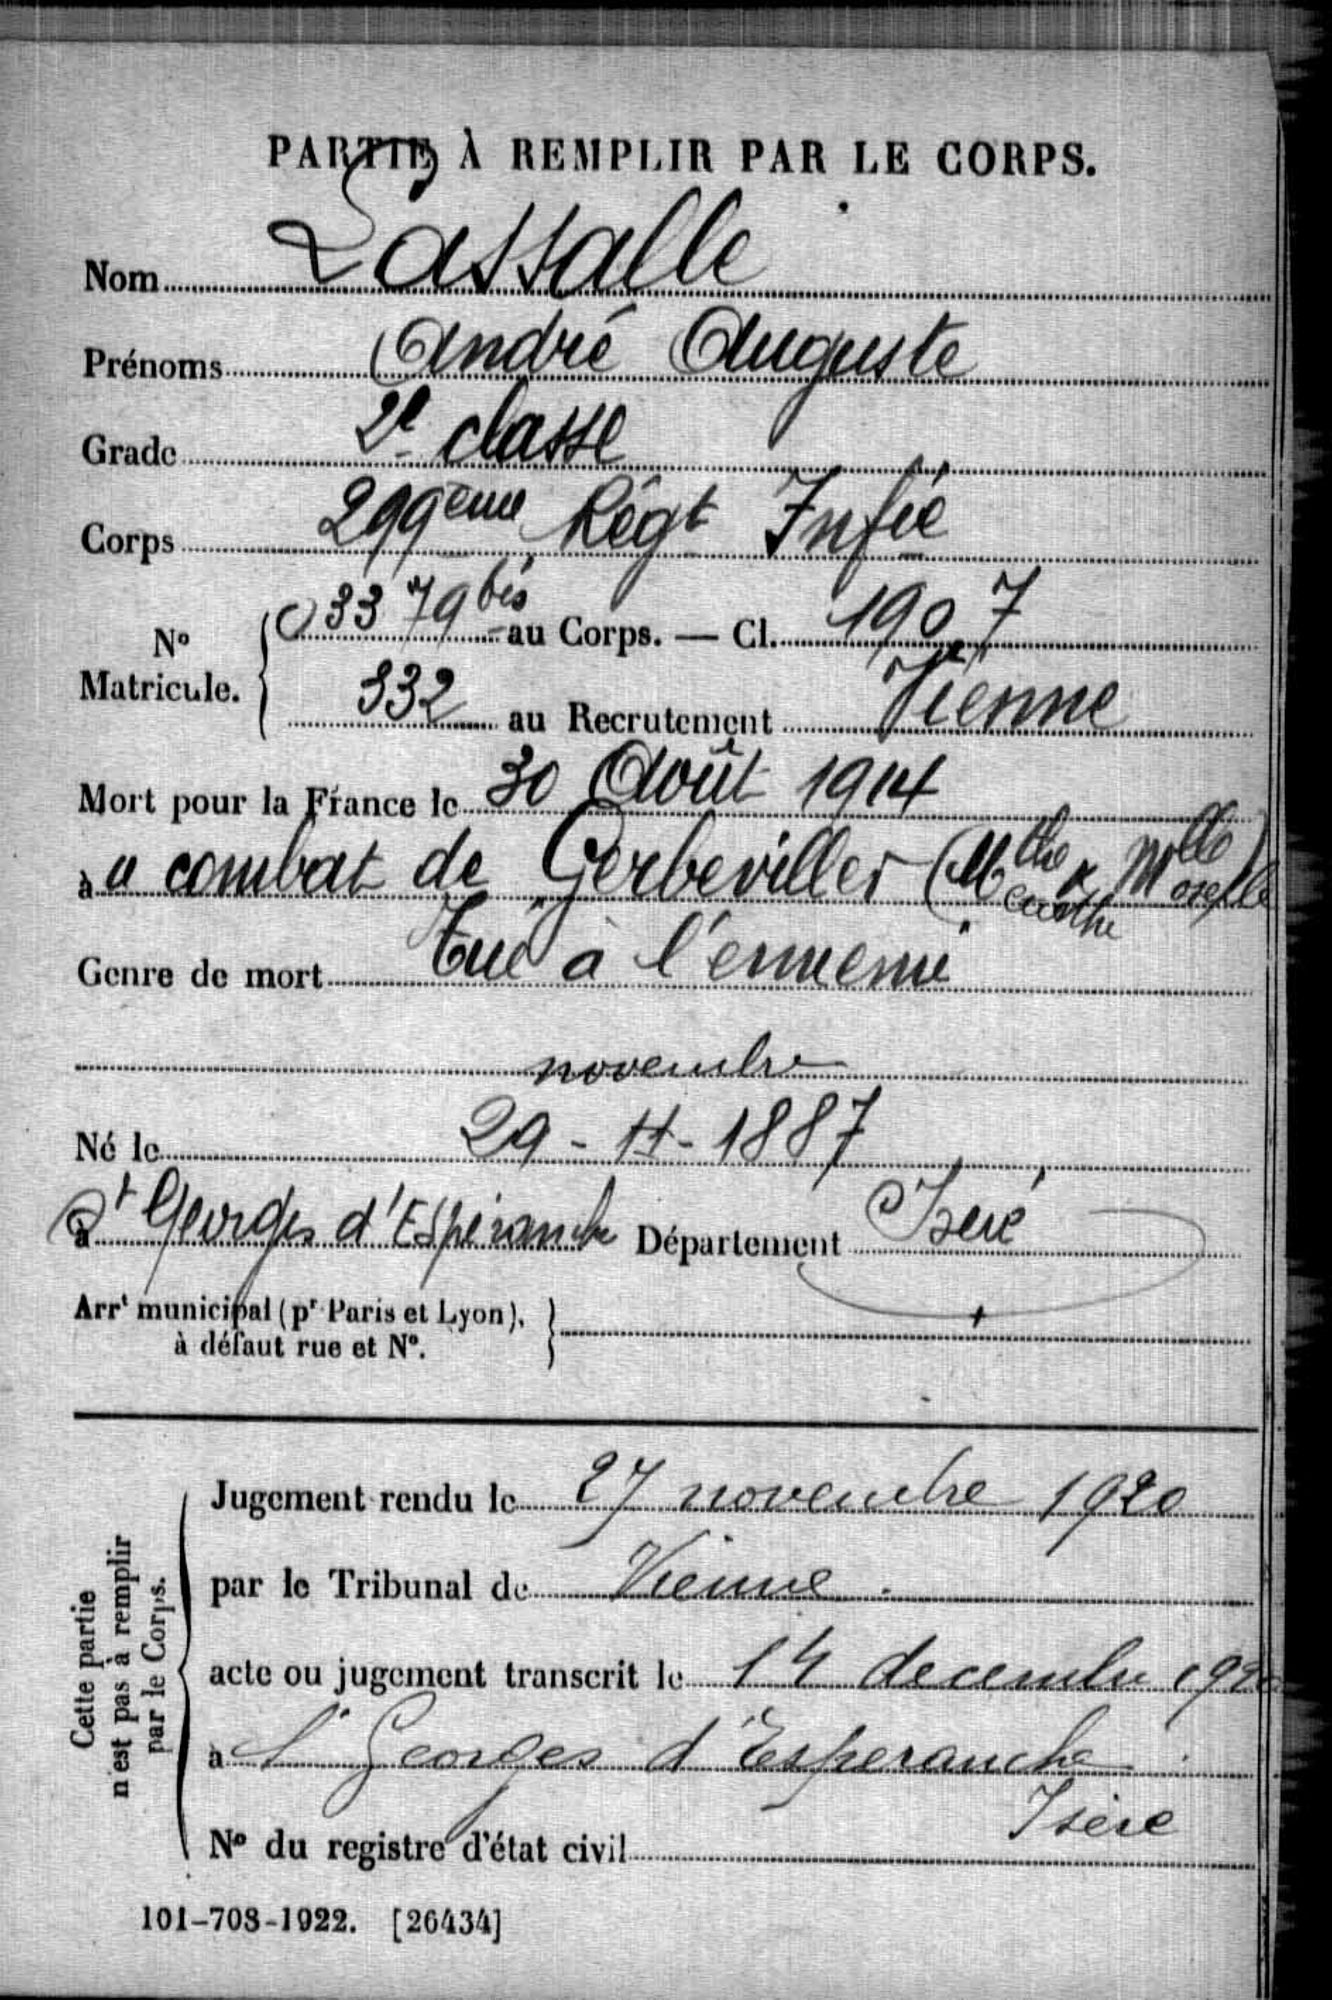 PARTIE À REMPLIR PAR LE CORPS.
Nom Lassalle
Prénoms André Auguste
Grade 2e classe
Corps 299ème Régt Infie
No Matricule. { 03379 bis au Corps. — Cl. 1907
332 au Recrutement Vienne
Mort pour la France le 30 Août 1914
au combat de Gerbeviller (Mthe & Mlle)
Meurthe Moselle
Genre de mort Tué à l'ennemi
novembre
Né le 29-11-1887
à St Georges d'Espéranche Département Isère
Arrt municipal (pr Paris et Lyon), }
à défaut rue et No.
Cette partie
n'est pas à remplir
par le Corps.
Jugement rendu le 27 novembre 1920
par le Tribunal de Vienne.
acte ou jugement transcrit le 14 decembre 1920
à St Georges d'Esperanche
Isère
No du registre d'état civil
101-708-1922. [26434]